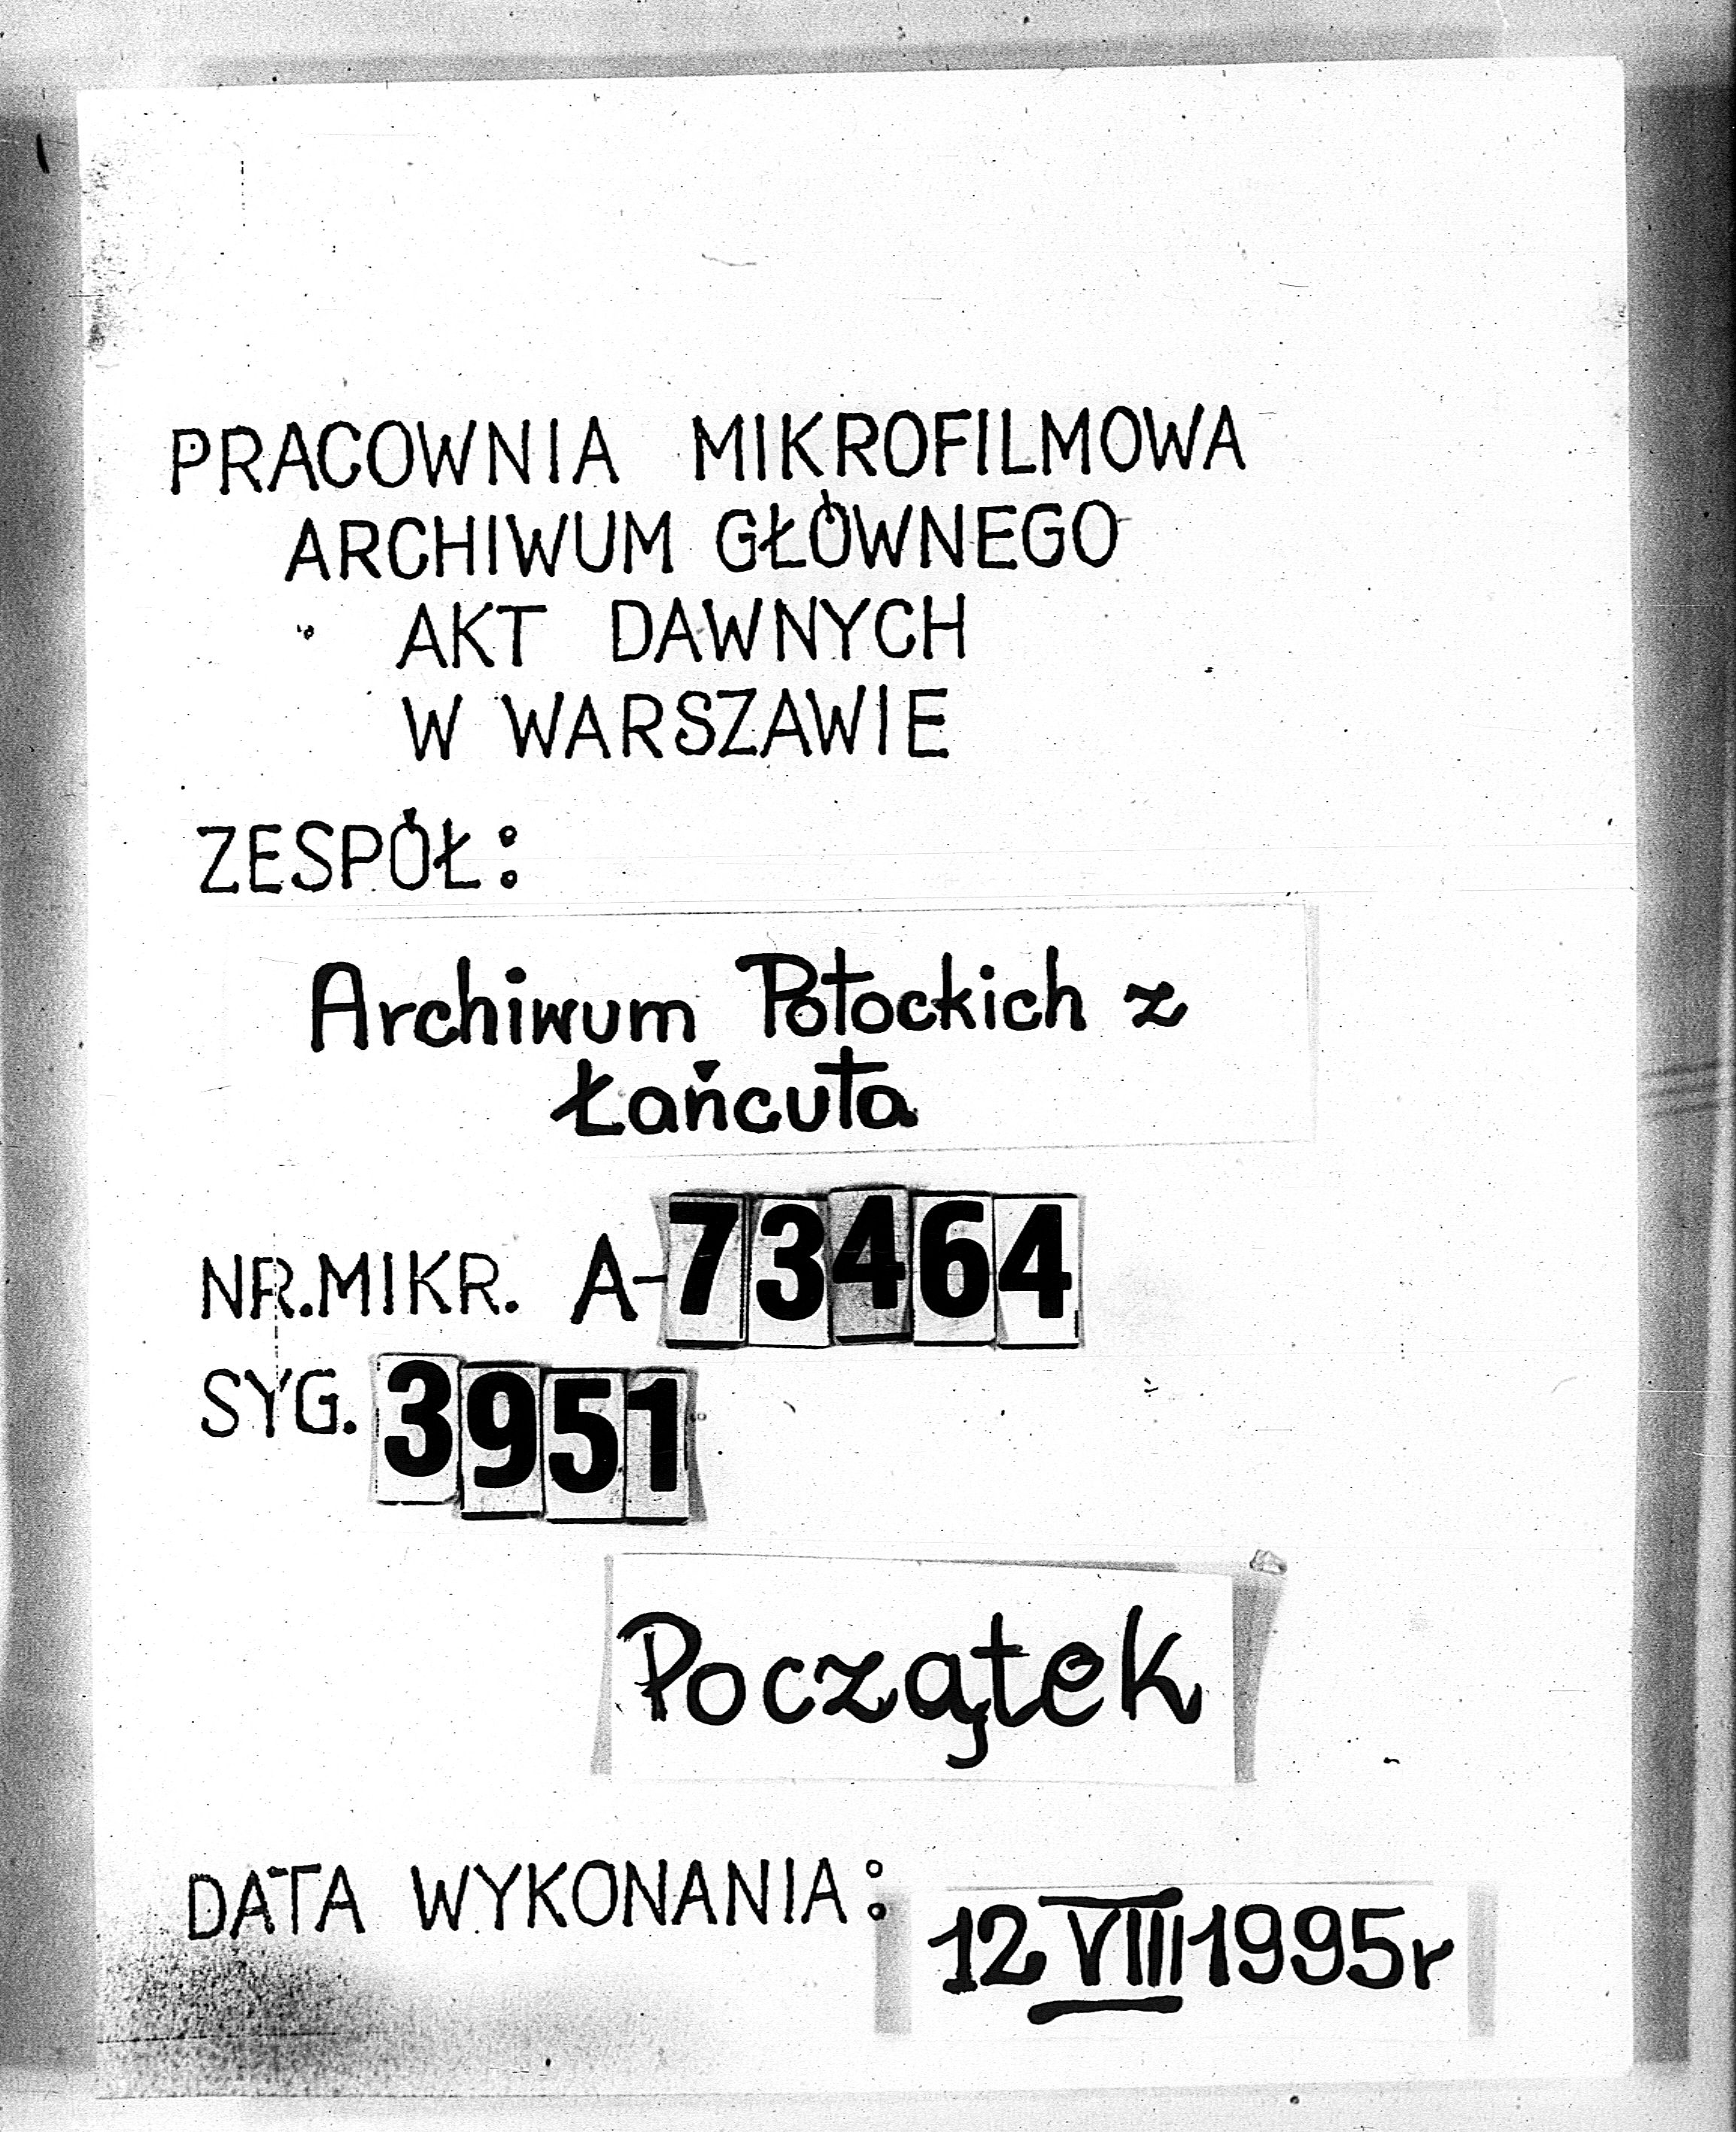 PRACOWNIA MIKROFILMOWA
ARCHIWUM GŁÓWNEGO
AKT DAWNYCH
W WARSZAWIE
ZESPÓŁ:
Archiwum Potockich z
Łańcuta
NR.MIKR. A-73464
SYG. 3951
Początek
DATA WYKONANIA: 12 VIII 1995r